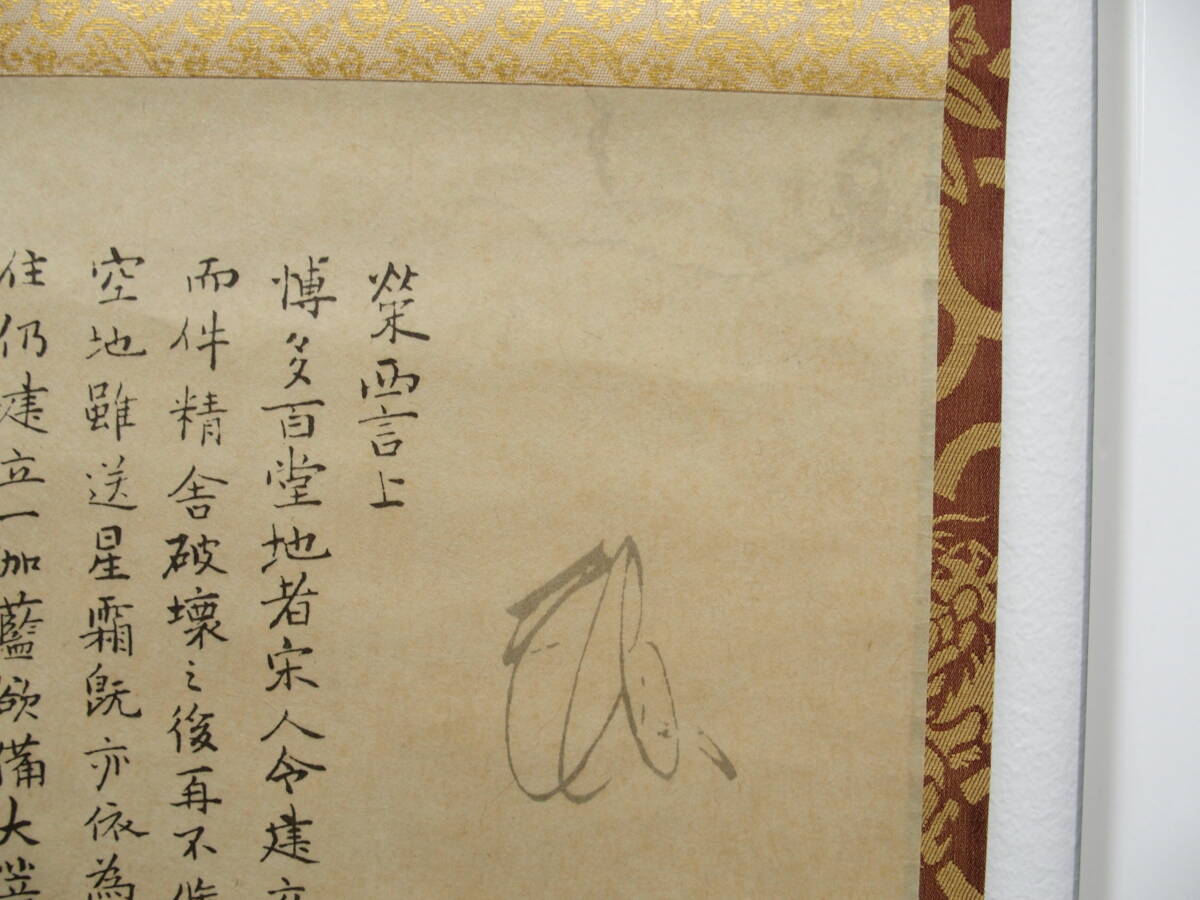 榮西言上
博多百堂地者宋人令建立
而件精舍破壞之後再不修
空地雖送星霜既亦依為
住仍建立一加藍欲備大